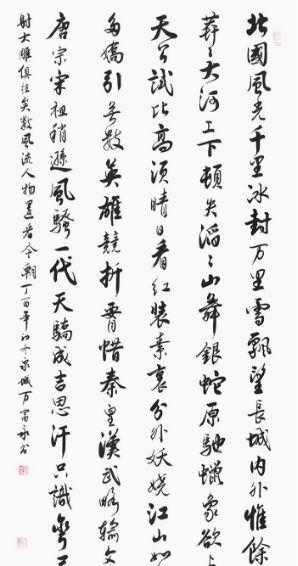 北國風光千里冰封万里雪飄望長城內外惟餘
莽〻大河上下頓失滔〻山舞銀蛇原馳蠟象欲与
天公試比高須晴日看紅裝素裹分外妖嬈江山如
多嬌引无數英雄競折腰惜秦皇漢武略輸文
唐宗宋祖稍遜風騷一代天驕成吉思汗只識彎弓
射大雕俱往矣數風流人物還看今朝丁酉年初冬泉城万富永書